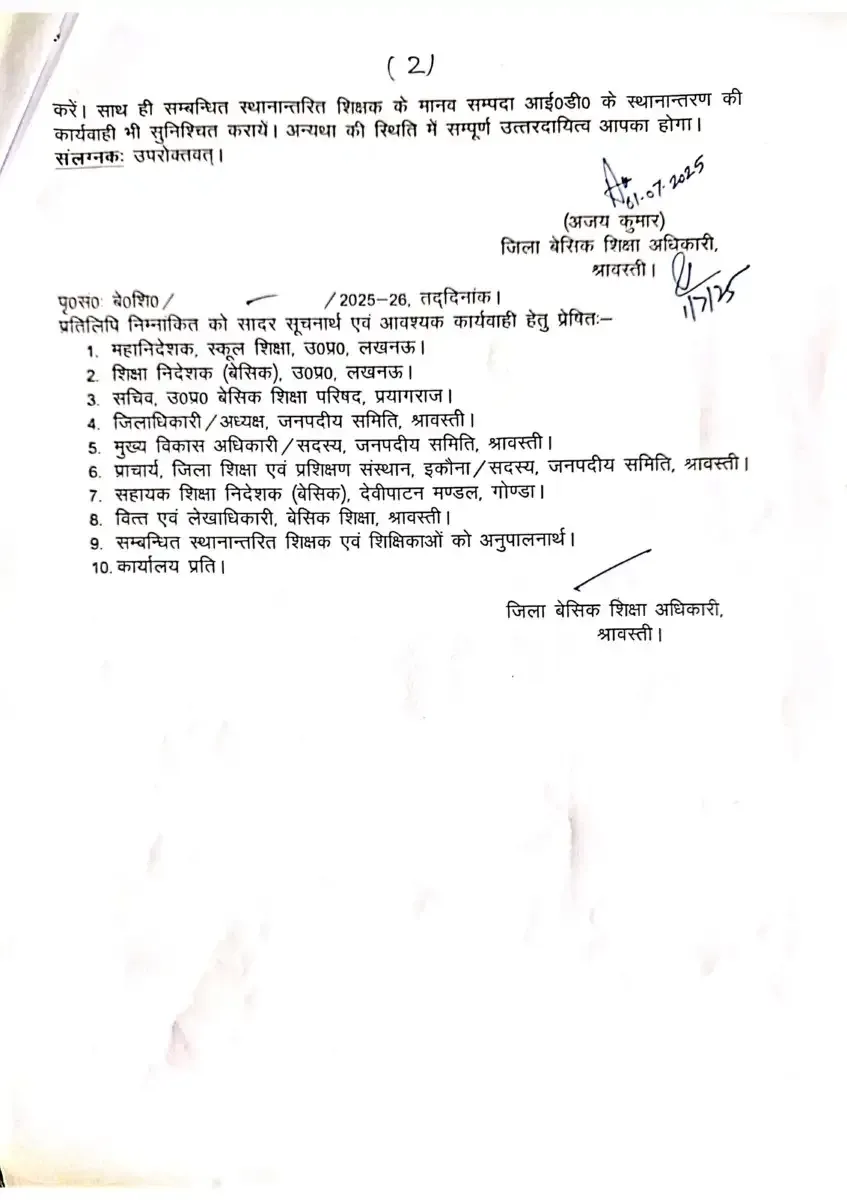 (2)
करें। साथ ही सम्बन्धित स्थानान्तरित शिक्षक के मानव सम्पदा आई0डी0 के स्थानान्तरण की
कार्यवाही भी सुनिश्चित करायें। अन्यथा की स्थिति में सम्पूर्ण उत्तरदायित्व आपका होगा।
संलग्नकः उपरोक्तवत्।
01.07.2025
(अजय कुमार)
जिला बेसिक शिक्षा अधिकारी,
श्रावस्ती।
1/7/25
पृ0सं0ः बे0शि0/ /2025-26, तद्दिनांक।
प्रतिलिपि निम्नांकित को सादर सूचनार्थ एवं आवश्यक कार्यवाही हेतु प्रेषितः-
1. महानिदेशक, स्कूल शिक्षा, उ0प्र0, लखनऊ।
2. शिक्षा निदेशक (बेसिक), उ0प्र0, लखनऊ।
3. सचिव, उ0प्र0 बेसिक शिक्षा परिषद, प्रयागराज।
4. जिलाधिकारी/अध्यक्ष, जनपदीय समिति, श्रावस्ती।
5. मुख्य विकास अधिकारी/सदस्य, जनपदीय समिति, श्रावस्ती।
6. प्राचार्य, जिला शिक्षा एवं प्रशिक्षण संस्थान, इकौना/सदस्य, जनपदीय समिति, श्रावस्ती।
7. सहायक शिक्षा निदेशक (बेसिक), देवीपाटन मण्डल, गोण्डा।
8. वित्त एवं लेखाधिकारी, बेसिक शिक्षा, श्रावस्ती।
9. सम्बन्धित स्थानान्तरित शिक्षक एवं शिक्षिकाओं को अनुपालनार्थ।
10. कार्यालय प्रति।
जिला बेसिक शिक्षा अधिकारी,
श्रावस्ती।